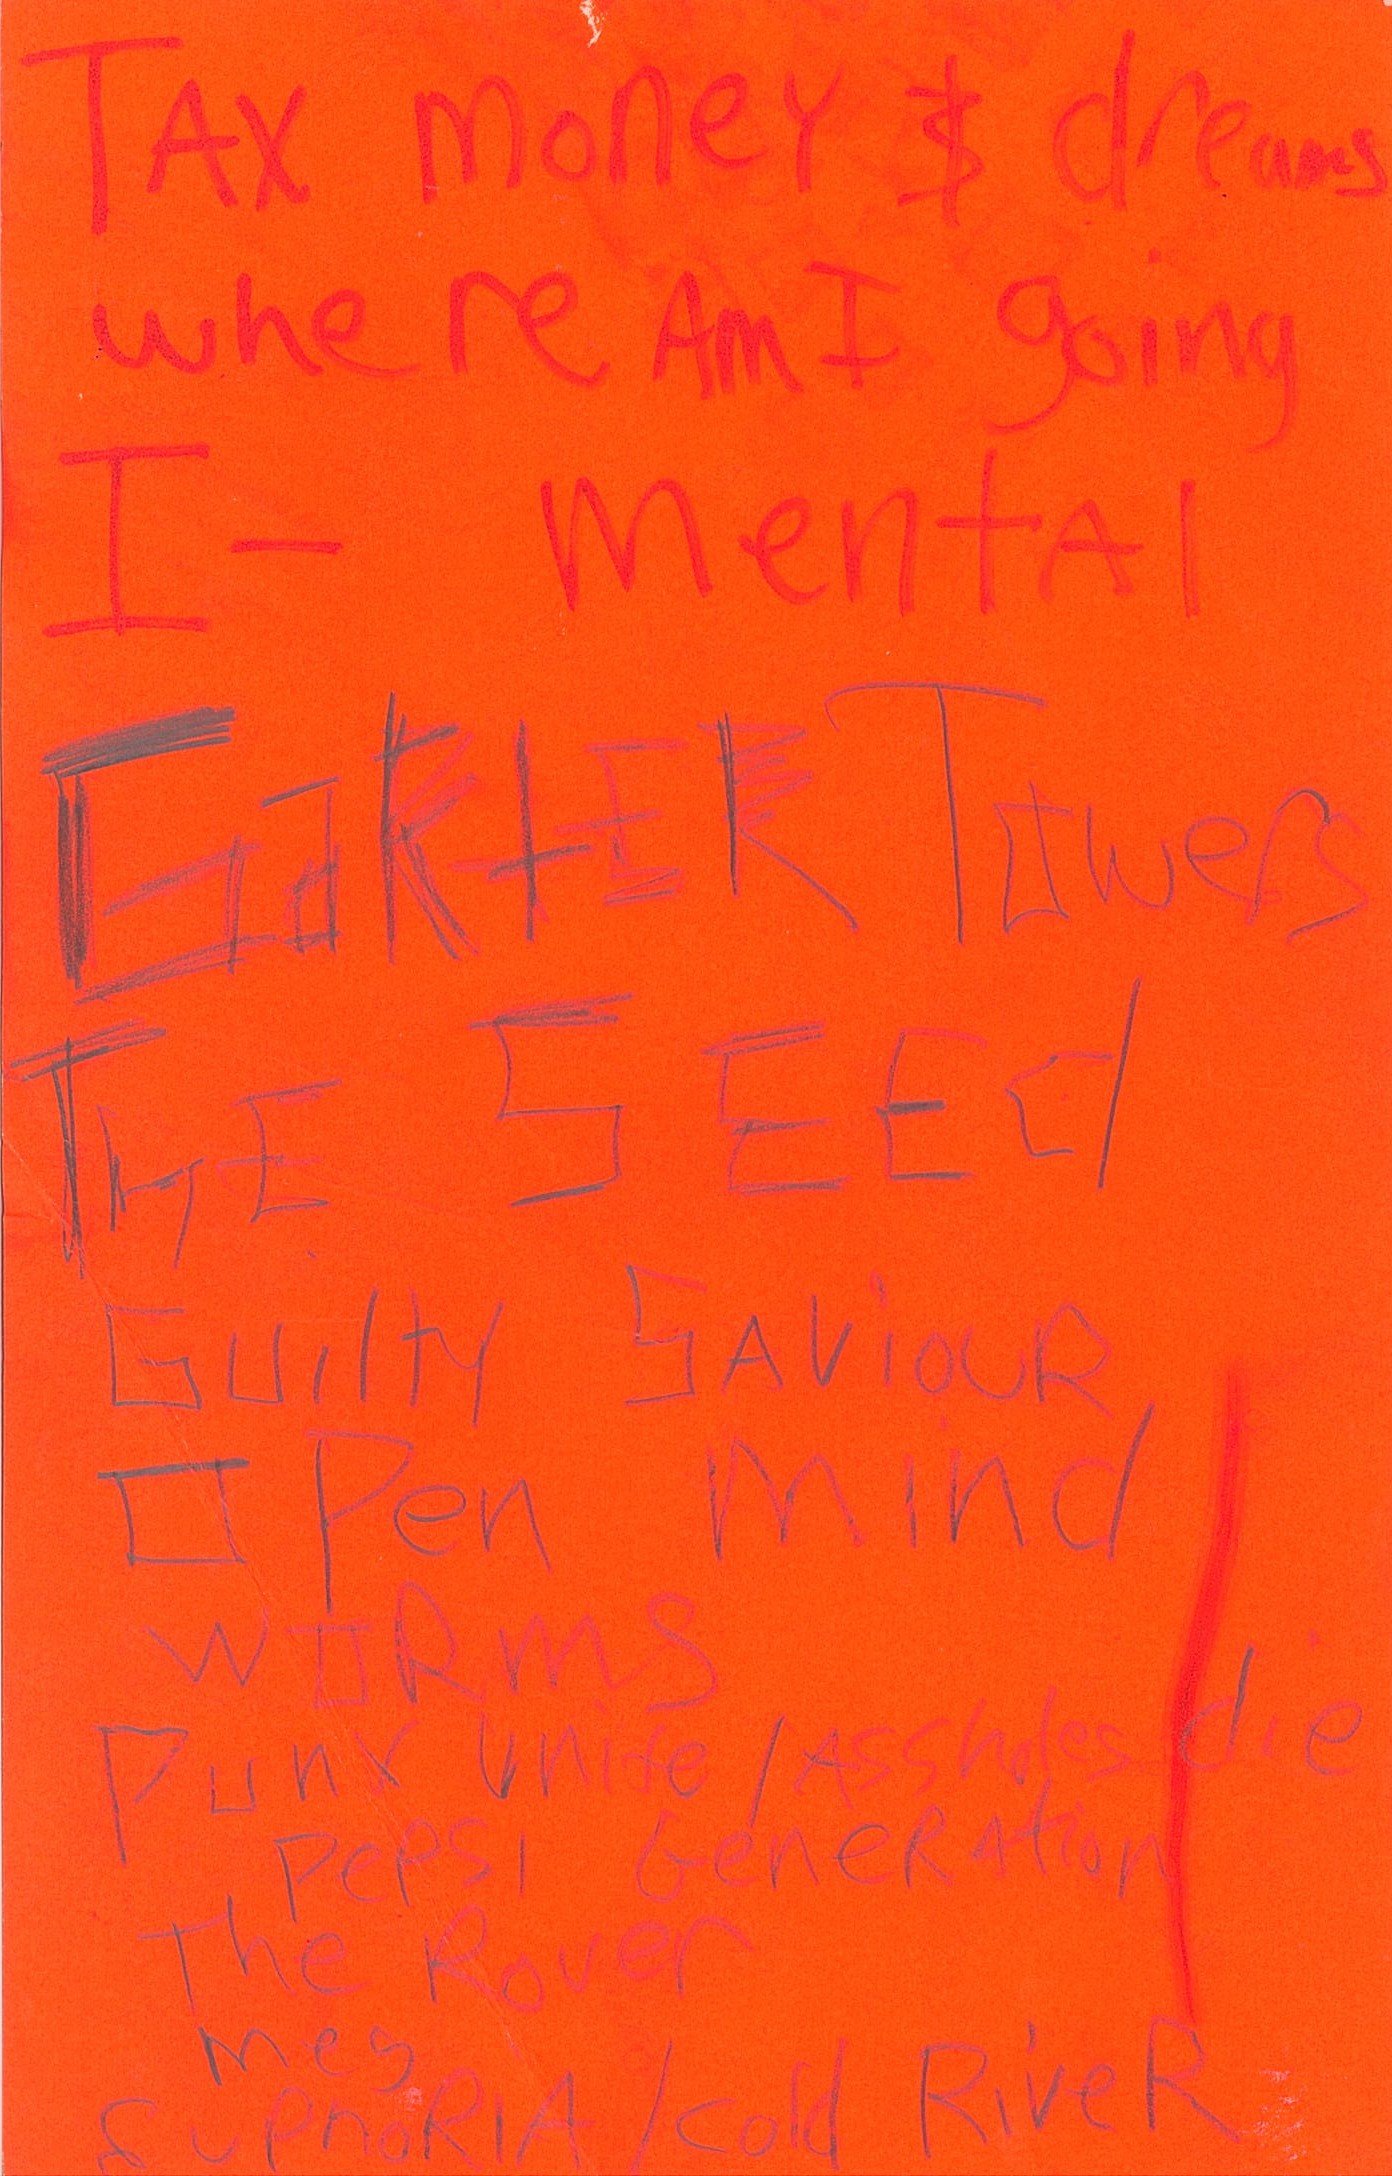 TAX money $ dreams
where Am I going
I- mentAl
Towers
ThE SEEd
Guilty SAViOUR
OPen mind
wORms
Punx unite / Assholes die
PePSi GeneRAtion
The Rover
meg
EUPhORIA / cold RiveR